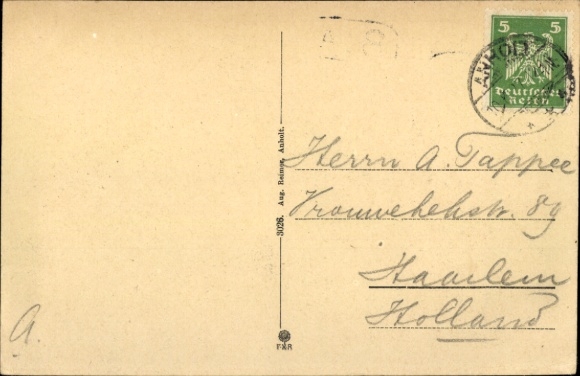 5 5
Deutsches
Reich
ANHOLT
Herrn A. Tappee
Vrouwehekstr. 89
Haarlem
Holland
3026. Aug. Reimer, Anholt.
A.
F&R